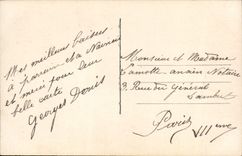 Mes meilleurs baisers
à parrain et à Nainain
et merci pour leur
belle carte
Georges Denis
Monsieur et Madame
Lamotte ancien Notaire
3 Rue du Général
Lambert
Paris
VII ème